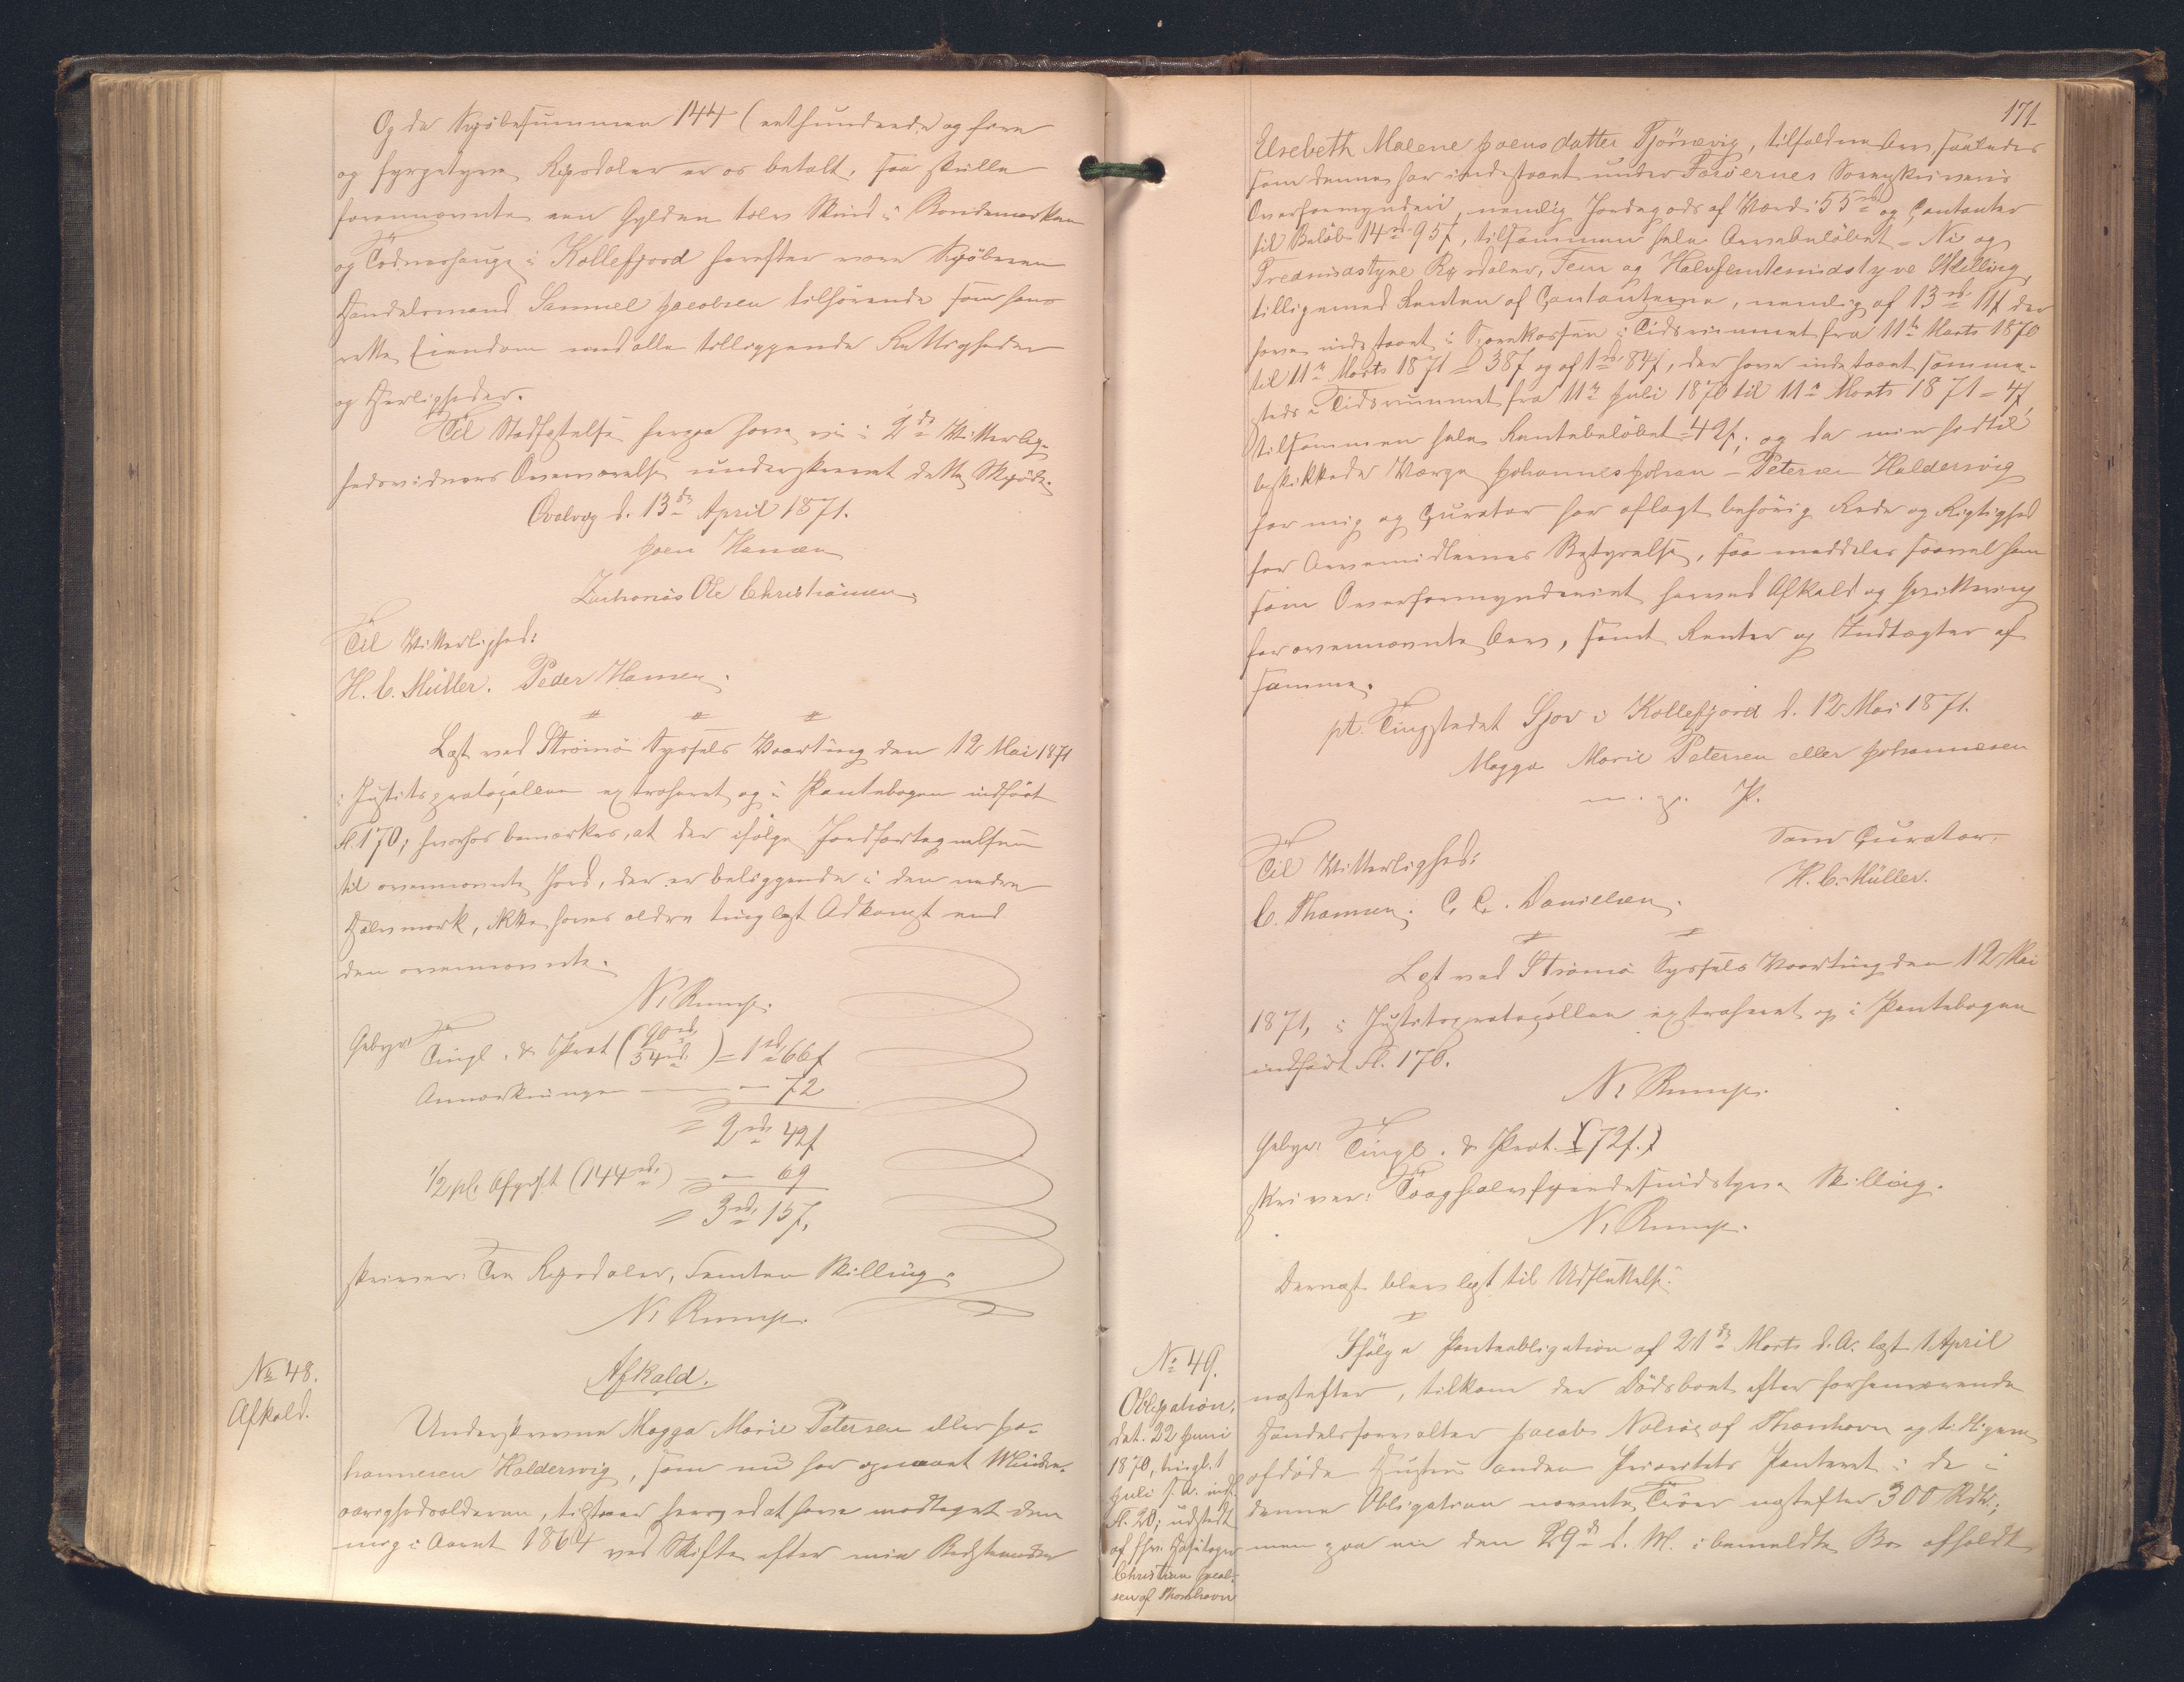 Og da Kjøbesummen 144 (eethundrede og fire
og fyrgetyve Rigsdaler er os betalt, saa skulle
forennævnte een Gylden tolv Skind i Bondemarken
og Todneshauge i Kollefjord herefter være Kjøberen
Handelsmand Samuel Jacobsen tilhørende som hans
rette Eiendom med alle tilliggende Rettigheder
og Herligheder.
Til Stadfæstelse herpaa have vi i 2de Vitterlig-
hedsvidners Overværelse underskrevet dette Skjøde.
Qvalvig d. 13de April 1871.
Joen Hansen
Zacharias Ole Christiansen
Til Vitterlighed:
H. C. Müller. Peder Hansen.
Læst ved Strømø Syssels Vaarting den 12 Mai 1871
i Justitsprotocollen extraheret og i Pantebogen indført
fl. 170; hvorhos bemærkes, at der ifølge Jordfortegnelsen
til ovennævnte Jord, der er beliggende i den nedre
Halvmark, ikke haves ældre tinglæst Adkomst end
den ovennævnte.
N. Rump.
Gebyr: Tingl. & Prot (90rd. 54rd.) = 1rd 66f
Anmærkninger — 72
= 2rd 42f
1/2 pC. Afgift (144rd.) — 69
= 3rd 15f.
skriver: Tre Rigsdaler, Femten Skilling.
N. Rump.
No 48.
Afkald.
Afkald.
Underskrevne Magga Marie Petersen eller Jo-
hannesen Haldersvig, som nu har opnaaet Minder-
aarighedsalderen, tilstaaer herved at have modtaget den
mig i Aaret 1864 ved Skifte efter min Bedstemoder
171
Elsebeth Malene Joensdatter Tjørnevig, tilfaldne Arv, saaledes
som denne har indestaaet under Færøernes Sorenskriveris
Overformynderi, nemlig Jordegods af Værdi 55rd og Contanter
til Beløb 14rd 95f, tilsammen hele Arvebeløbet = Ni og
Tredsindstyve Rigsdaler, Fem og Halvfemtesindstyve Skilling,
tilligemed Renten af Contanterne, nemlig af 13rd 11f der
have indestaaet i Sparekassen i Tidsrummet fra 11te Marts 1870
til 11te Marts 1871 = 38f og af 1rd 84f, der have indestaaet samme-
steds i Tidsrummet fra 11te Juli 1870 til 11te Marts 1871 = 4f,
tilsammen hele Rentebeløbet = 42f; og da min hidtil
beskikkede Værge Johannes Johan-Petersen Haldersvig
for mig og Curator har aflagt behørig Rede og Rigtighed
for Arvemidlernes Bestyrelse, saa meddeles saavel ham
som Overformynderiet herved Afkald og Qvittering
for ovennævnte Arv, samt Renter og Indtægter af
samme.
pt. Tingstedet Sjov i Kollefjord d. 12 Mai 1871.
Magga Marie Petersen eller Johannesen
m. p. P.
Som Curator.
H. C. Müller.
Til Vitterlighed:
C. Thomsen. C. C. Danielsen.
Læst ved Strømø Syssels Vaarting den 12 Mai
1871, i Justitsprotocollen extraheret og i Pantebogen
indført fl. 170.
N. Rump.
Gebyr: Tingl. & Prot. (72f.)
skriver: Tooghalvfjerdsindstyve Skilling.
N. Rump.
Dernæst blev læst til Udslettelse:
No 49.
Obligation,
dat. 22 Juni
1870, tingl. 1
Juli s. A. indf.
fl. 20; udstedt
af fhv.
Christian Jacob-
sen af Thorshavn
Ifølge Panteobligation af 21de Marts d. A. læst 1 April
næstefter, tilkom der Dødsboet efter forhenværende
Handelsforvalter Jacob Nolsøe af Thorshavn og tidligere
afdøde Hustru anden Prioritets Panteret i de i
denne Obligation nævnte Huse næstefter 300 Rdlr;
men paa en den 29de d. M. i bemeldte Bo afholdt